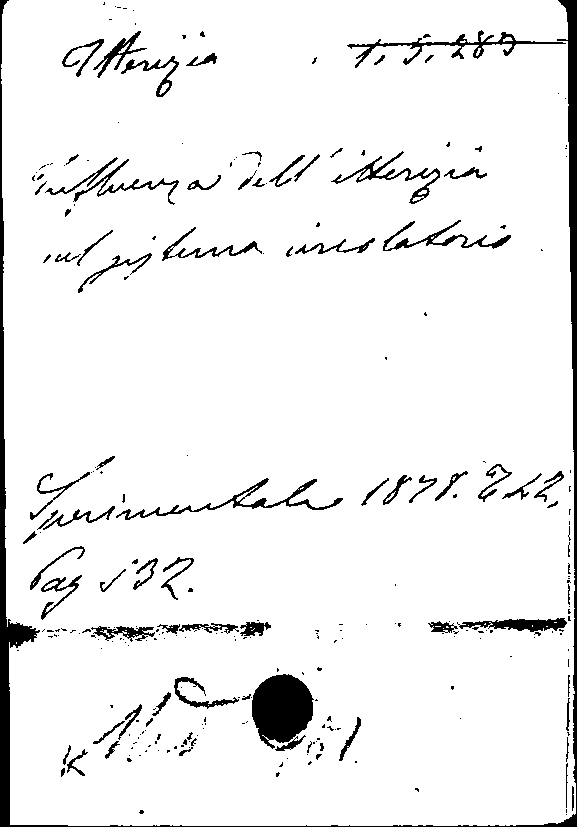 Itterizia . 1, 5, 283
Influenza dell' itterizia
sul sistema circolatorio
Sperimentale 1878. T 42,
Pag 532.